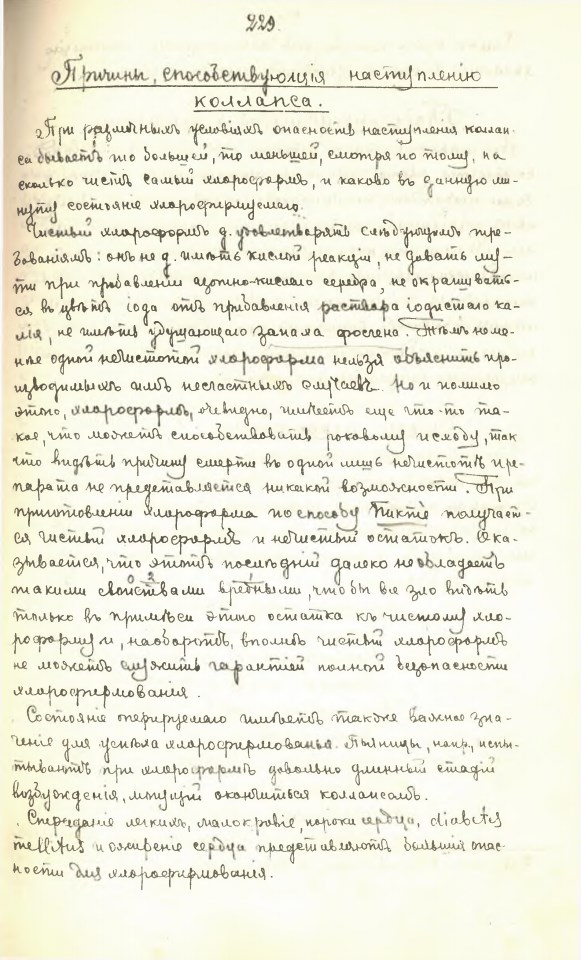 229.
Причины, способствующія наступленію
коллапса.
При различныхъ условіяхъ опасность наступленія коллап-
са бываетъ то большей, то меньшей, смотря по тому, на
сколько чистъ самый хлороформъ, и каково въ данную ми-
нуту состояніе хлороформируемаго.
Чистый хлороформъ д. удовлетворять слѣдующимъ тре-
бованіямъ: онъ не д. имѣть кислой реакціи, не давать му-
ти при прибавленіи азотно-кислаго серебра, не окрашивать-
ся въ цвѣтъ іода отъ прибавленія раствора іодистаго ка-
лія, не имѣть удушающаго запаха фосгена. Тѣмъ неме-
нѣе одной нечистотой хлороформа нельзя объяснить про-
изводимыхъ имъ несчастныхъ случаевъ. Но и помимо
этого, хлороформъ, очевидно, имѣетъ еще что-то та-
кое, что можетъ способствовать роковому исходу, такъ
что видѣть причину смерти въ одной лишь нечистотѣ пре-
парата не представляется никакой возможности. При
приготовленіи хлороформа по способу Пиктѐ получает-
ся чистый хлороформъ и нечистый остатокъ. Ока-
зывается, что этотъ послѣдній далеко не обладаетъ
такими свойствами вредными, чтобы все зло видѣть
только въ примѣси этого остатка къ чистому хло-
роформу и, наоборотъ, вполнѣ чистый хлороформъ
не можетъ служить гарантіей полной безопасности
хлороформированія.
Состояніе оперируемаго имѣетъ также важное зна-
ченіе для успѣха хлороформированья. Пьяницы, напр., испы-
тываютъ при хлороформѣ довольно длинный стадій
возбужденія, могущій окончиться коллапсомъ.
Страданіе легкихъ, малокровіе, пороки сердца, diabetes
mellitus и ожиреніе сердца представляютъ большія опас-
ности для хлороформированія.